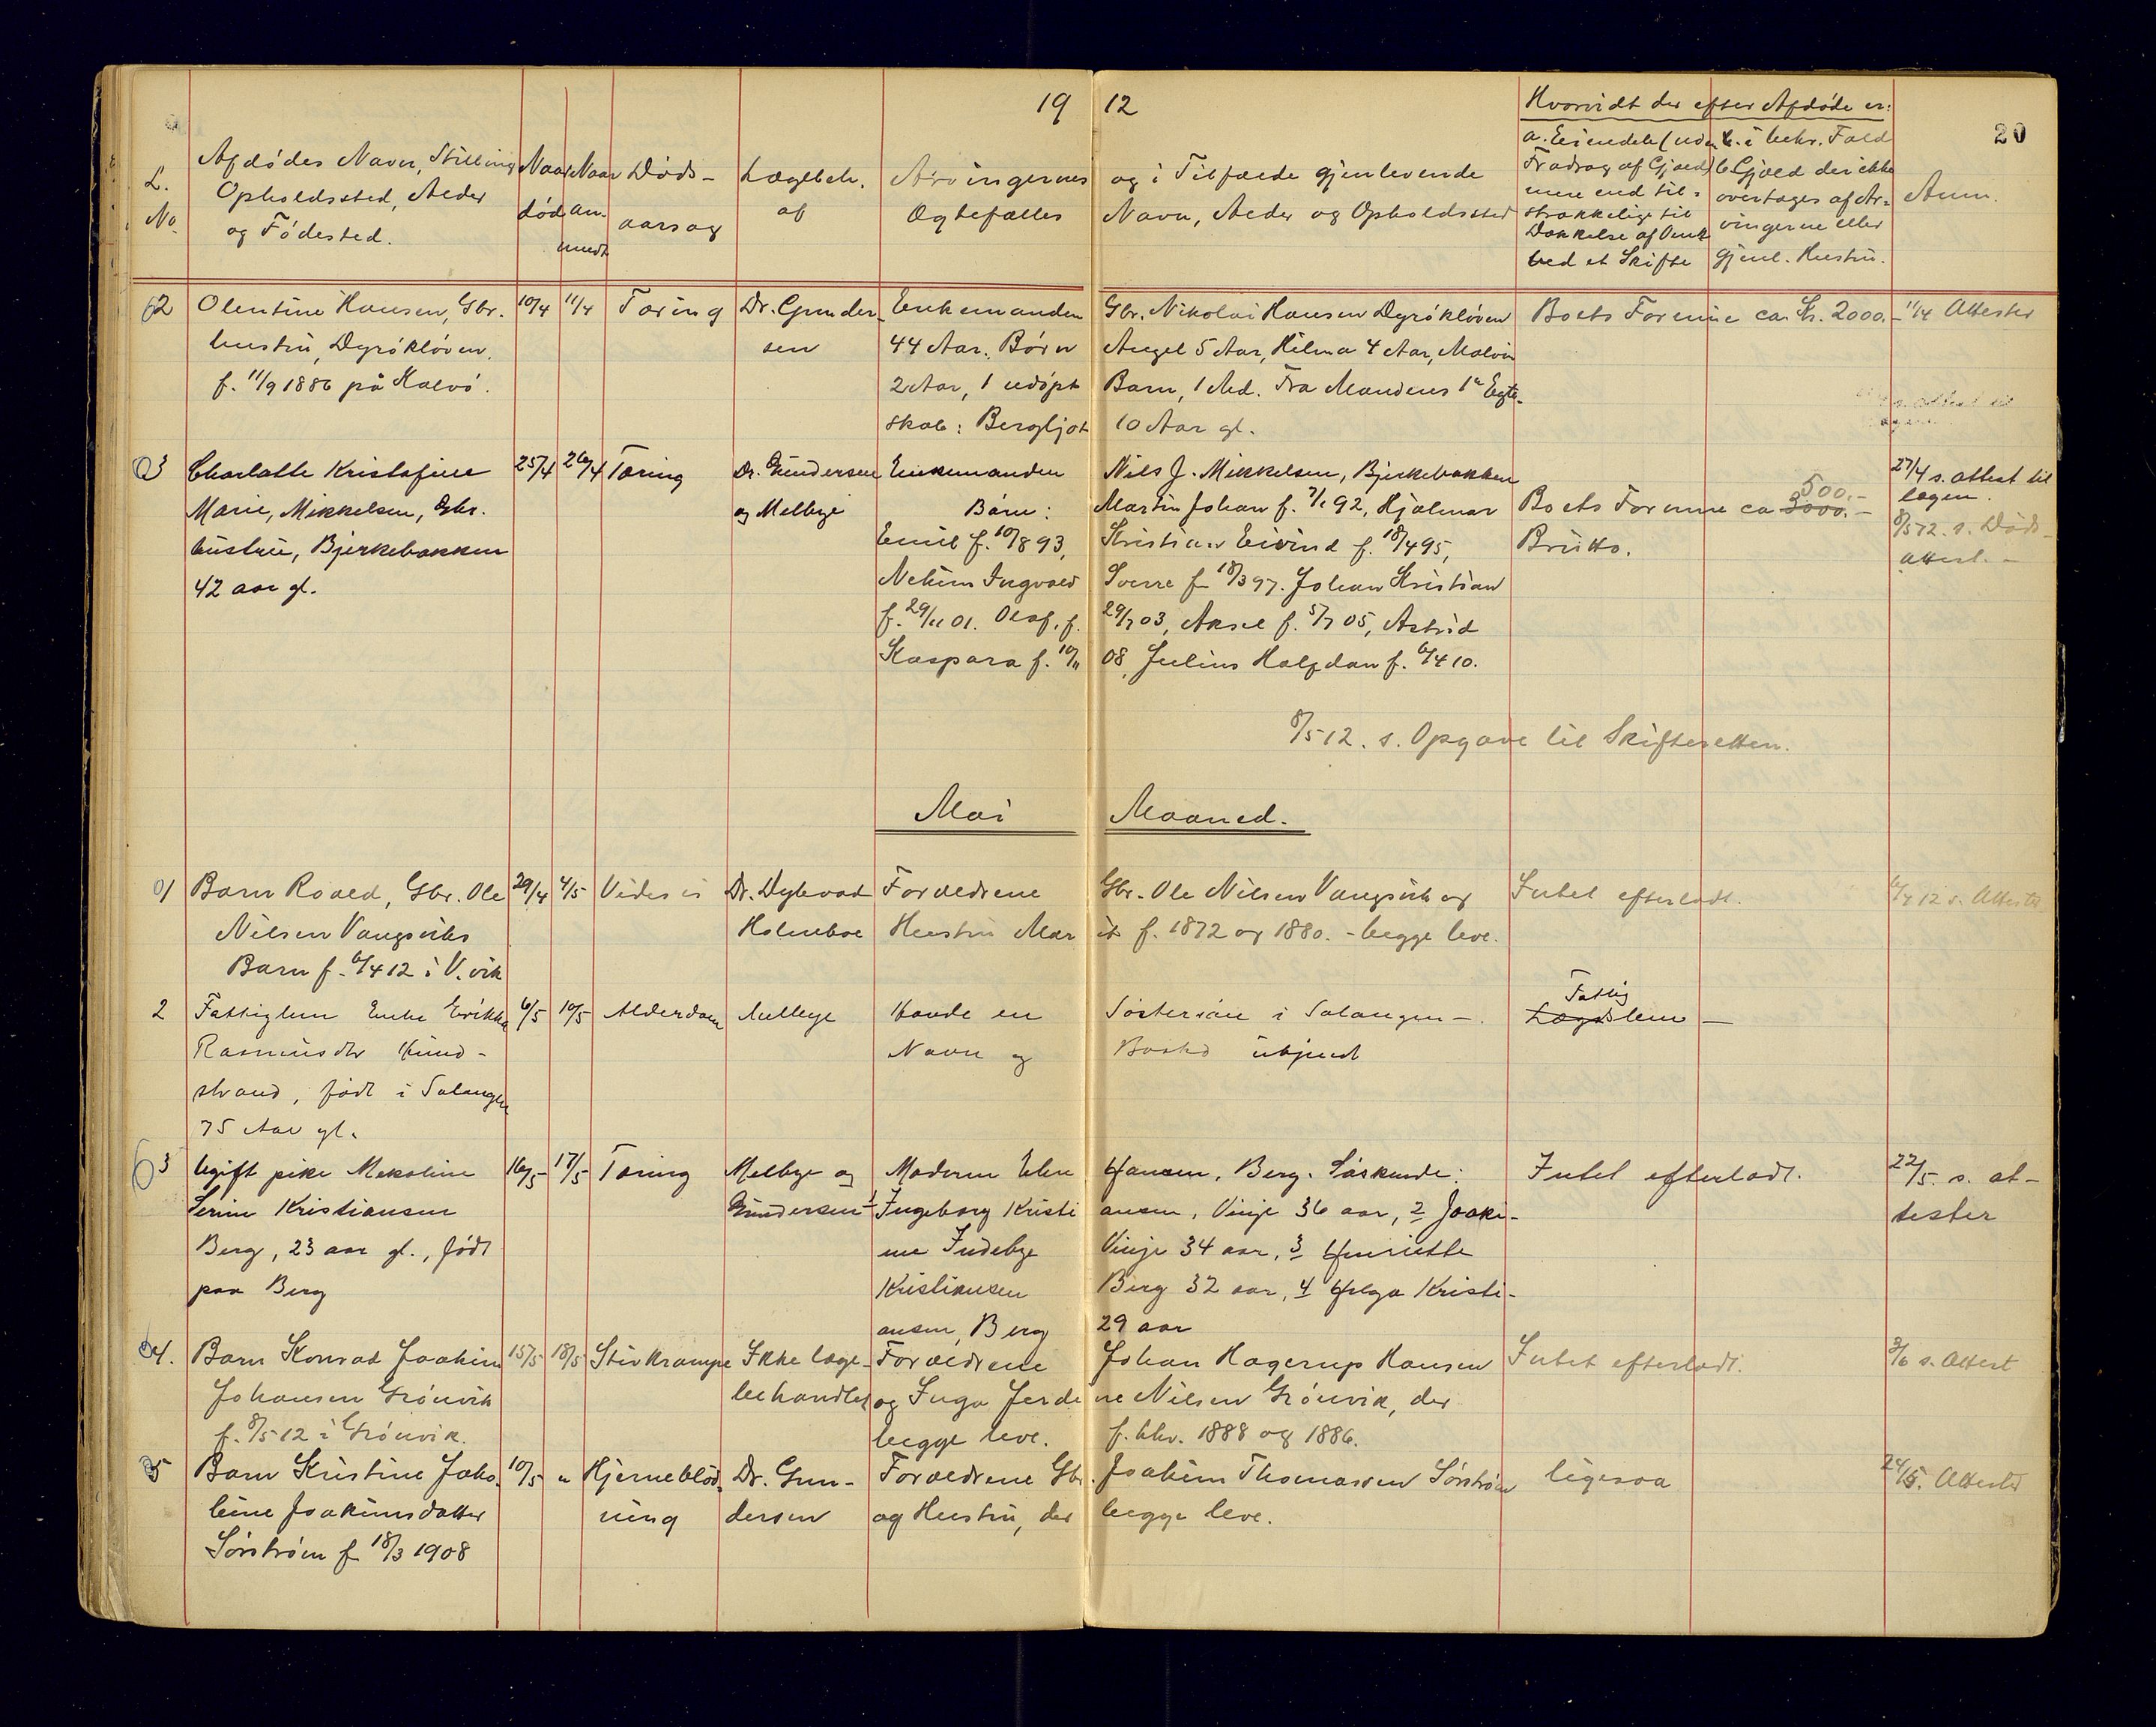 19 12
20
L. No.
Afdödes Navn, Stilling
Opholdssted, Alder
og Födested.
Naar död
Naar anmeldt
Döds-
aarsag
Lægbeh.
af
Arvingernes og i Tilfælde gjenlevende
Ægtefælles Navn, Alder og Opholdssted
Hvorvidt der efter Afdöde er:
a. Eiendele (uden
Fradrag af Gjæld)
mere end til-
strækkelige til
Dækkelse af Omk
ved et Skifte
b. i bekr. Fald
Gjæld der ikke
overtages af Ar-
vingerne eller
gjenl. Hustru.
Anm.
2 Olentine Hansen, Gbr. 10/4 11/4 Tæring Dr. Gunder- Enkemanden Gbr. Nikolai Hansen Dyröklöven Boets Formue ca. Kr. 2000.- 11/4 Attester
hustru, Dyröklöven. sen 44 Aar. Börn Angel 5 Aar, Hilma 4 Aar, Malvin
f. 11/9 1886 på Kalvö. 2 Aar, 1 udöpt Barn, 1 Md. Fra Mandens 1e Egte-
skab: Bergljot 10 Aar gl.
3 Charlotte Kristofine 25/4 26/4 Tæring Dr. Gundersen Enkemanden Nils J. Mikkelsen, Bjerkebakken 27/4 s. attest til
lægen.
Marie, Mikkelsen, Gbr. og Melbye Barn: Martin Johan f. 7/1 92, Hjalmar Boets Formue ca 3000.- 500.-
hustru, Bjerkebakken Emil f. 10/8 93, Kristian Eivind f. 18/4 95, Brutto. 8/5 12. s. Döds-
attest.-
42 aar gl. Ingvald Sverre f 18/3 97. Johan Kristian
f. 29/11 01. Olaf. f. 29/7 03, Aksel f. 5/7 05, Astrid
Kaspara f. 10/11 08, Julius Halfdan f. 6/4 10.
8/5 12. s. Opgave til Skifteretten.
Mai Maaned.
1 Barn Roald, Gbr. Ole 29/4 4/5 Vides ei Dr. Dybvad Forældrene Gbr. Ole Nilsen Vangsvik og Intet efterladt. s. Attester
Nilsen Vangsviks Holmboe Hustru Marit f. 1872 og 1880. - begge leve.
Barn f. 6/4 12 i V.vik
2 Fattiglem Enke Erikka 6/5 10/5 Alderdom Melbye Havde en Sösterson i Salangen -. Lægdslem Fattig -
Rasmusdtr Navn og Bosted ubjendt
strand, födt i Salangen
75 Aar gl.
3 Ugift pike Mekoline 16/5 17/5 Tæring Melbye og Moderen Elen Hansen, Berg. Söskende: Intet efterladt. 22/5. s. at-
Serine Kristiansen Gundersen 1 Ingeborg Kristiansen, Vinje 36 aar, 2 Joaki- tester
Berg, 23 aar gl., födt me Indebye Vinje 34 aar, 3 Henriette
paa Berg Kristiansen Berg 32 aar, 4 Helga Kristi-
ansen, Berg 29 aar
4. Barn Konrad Joakim 15/5 18/5 Stivkrampe Ikke læge- Forældrene Johan Hagerup Hansen Intet efterladt. 3/6 s. Attest
Johansen Grönvik behandlet og Inga Jerdine Nilsen Grönvik, der
f. 8/5 12 i Grönvik. begge leve. f. hhv. 1888 og 1886.
5 Barn Kristine Jako- 10/5 " Hjerneblöd- Dr. Gun- Forældrene Gbr. Joakim Thomassen Sörströn ligesaa 24/5. Attester
bine Joakimsdatter ning dersen og Hustru, der begge leve.
Sörströn f 18/3 1908